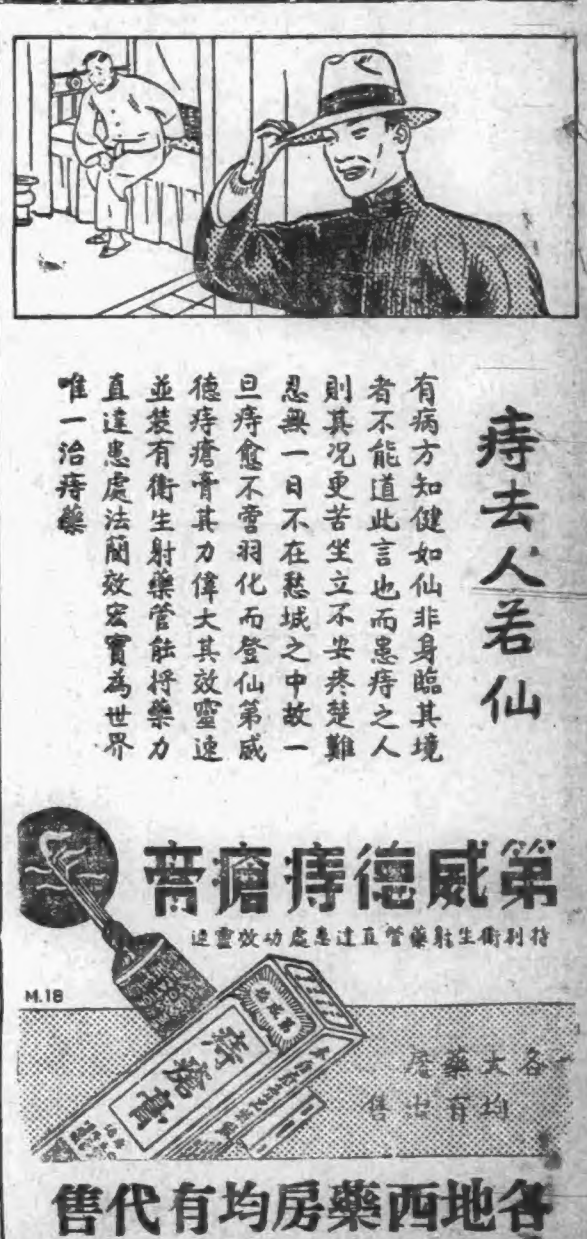 痔去人若仙
有病方知健如仙非身臨其境
者不能道此言也而患痔之人
則其况更苦坐立不安疼楚難
忍無一日不在愁城之中故一
旦痔愈不啻羽化而登仙第威
德痔瘡膏其力偉大其效靈速
並裝有衛生射藥管能將藥力
直達患處法簡效宏實為世界
唯一治痔藥
第威德痔瘡膏
特別衛生射藥管直達患處功效靈速
M.18
第威德
痔瘡膏
各大藥房
均有出售
各地西藥房均有代售